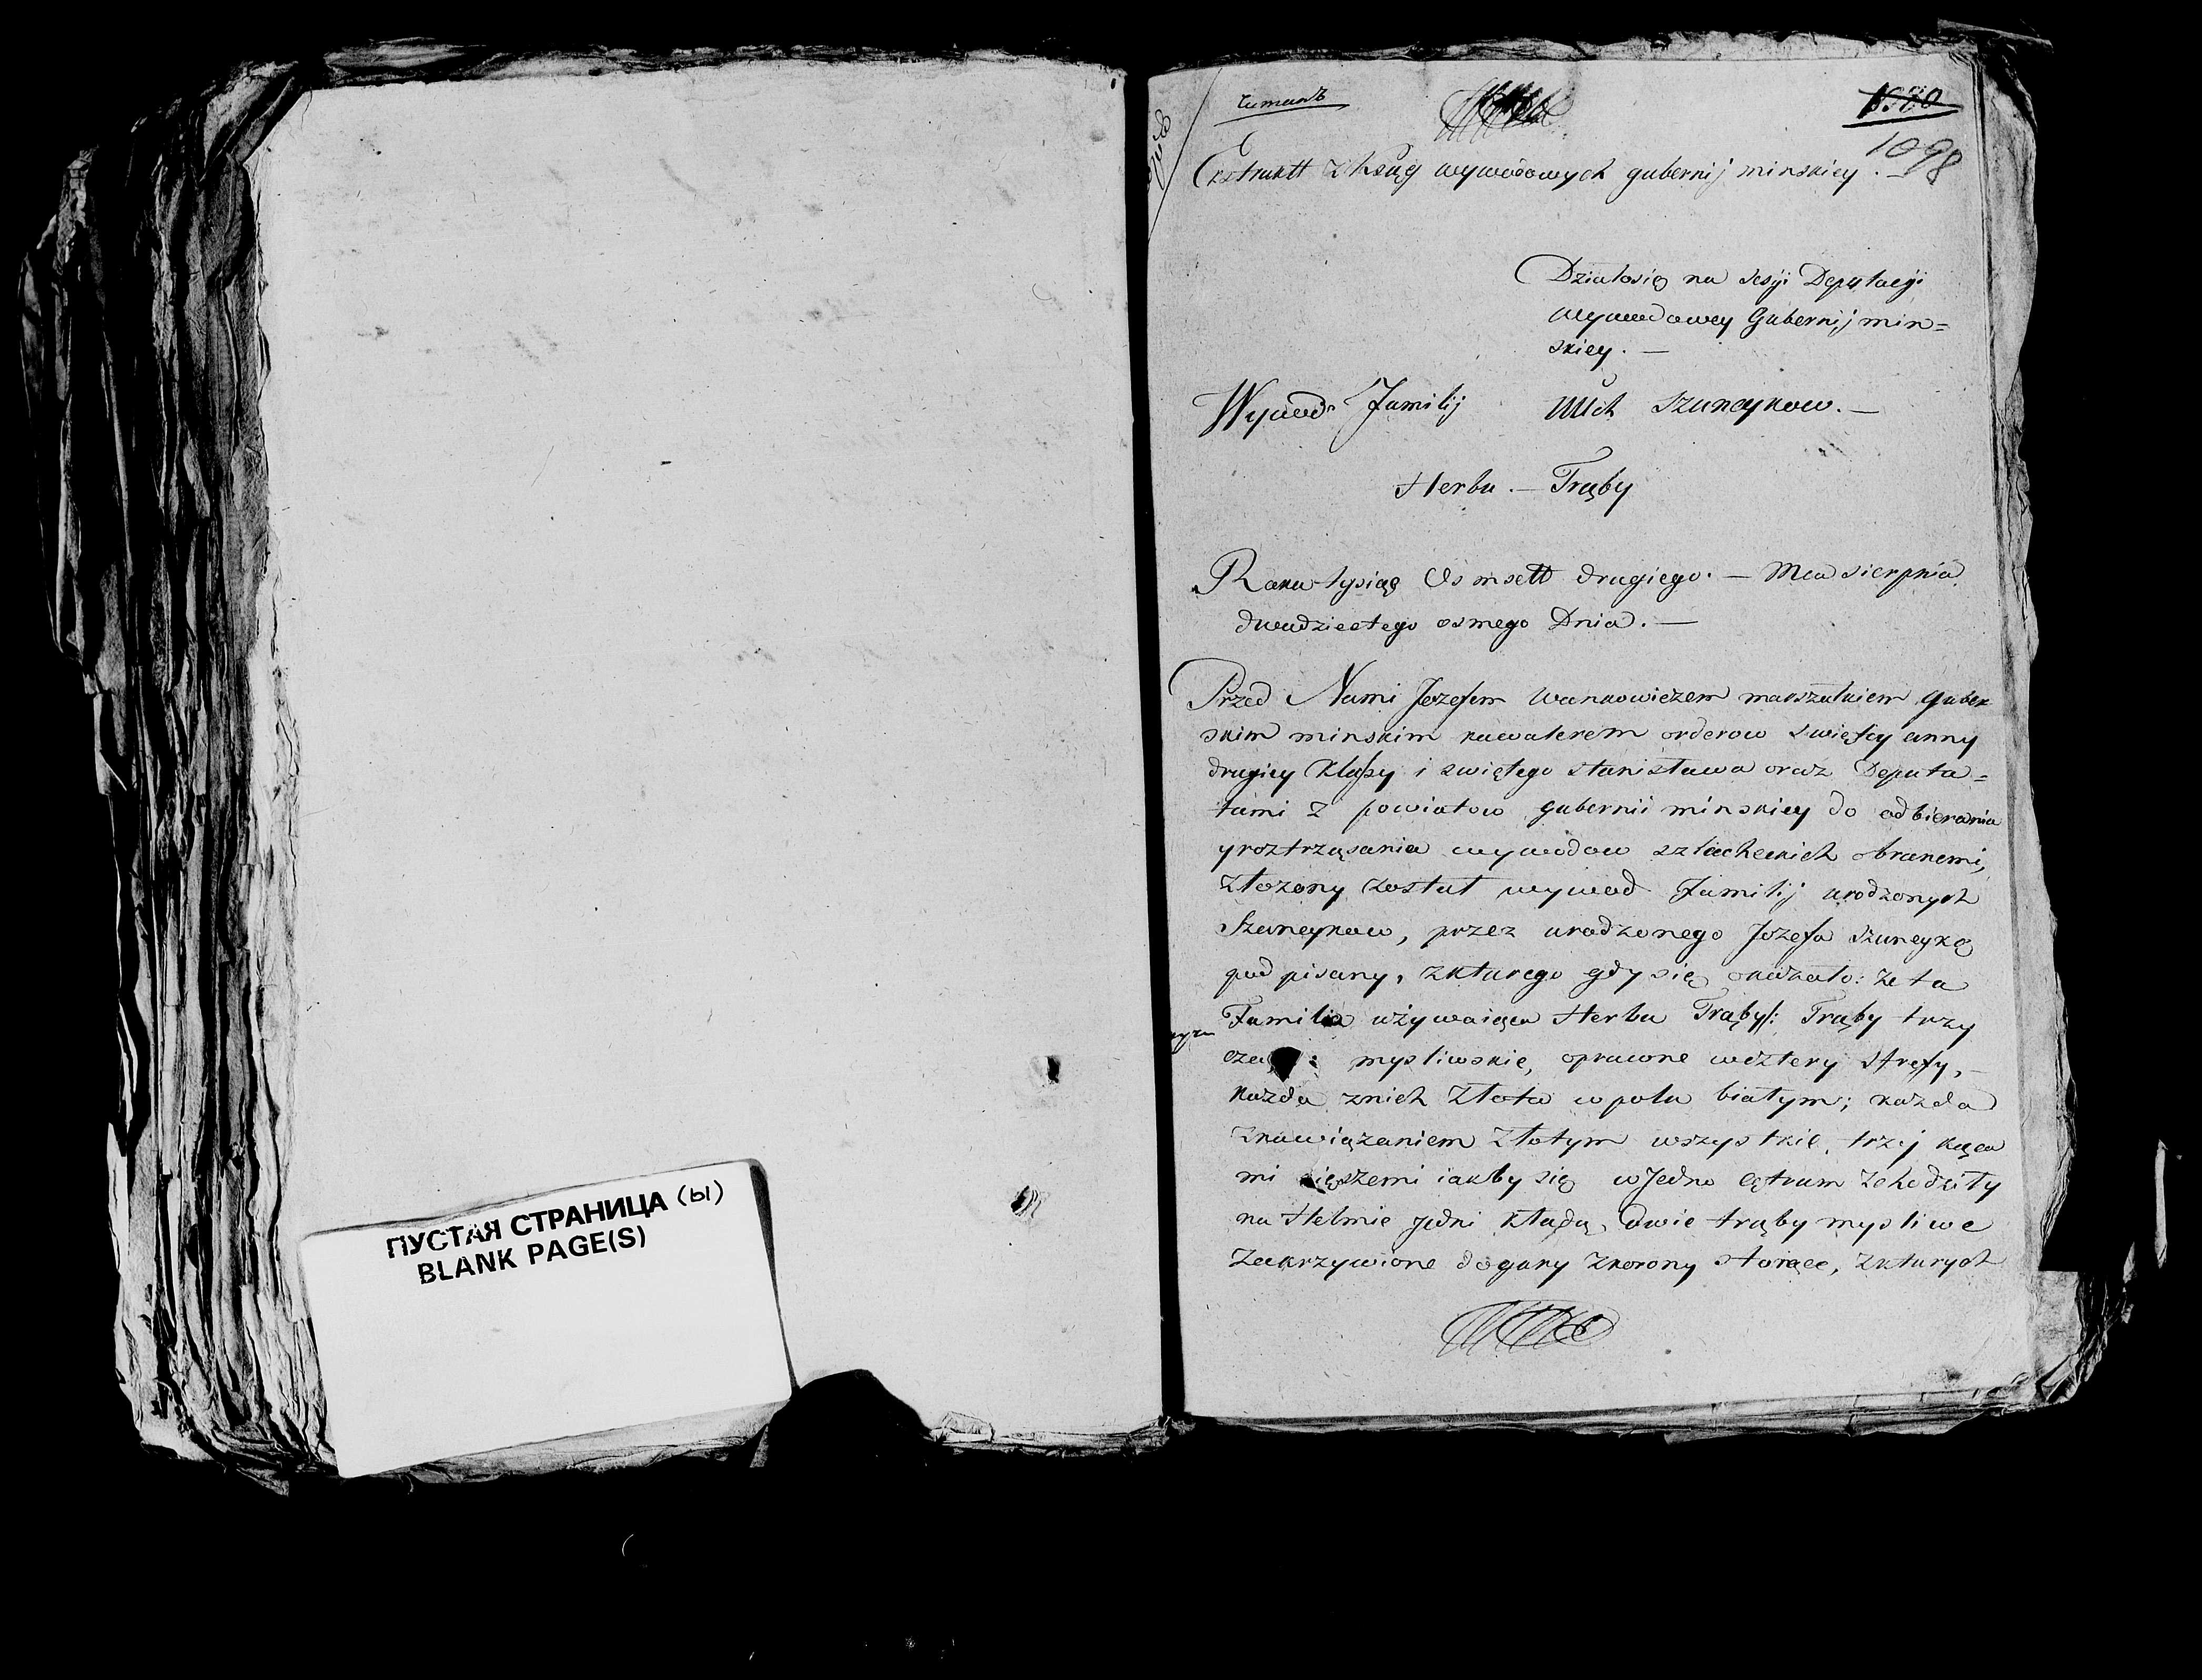 ПУСТАЯ СТРАНИЦА (ы)
BLANK PAGE(S)
Читанъ
1098
Extraktt z Ksiąg wywodowych gubernij minskiey. —
Działosię na Sesyi Deputacyi
wywodowey Gubernij min=
skiey. —
Wywod Familij WUch Szuneykow. —
Herbu. — Trąby
Roku tysiąc Osmsett drugiego. — Mca sierpnia
dwudziestego osmego Dnia. —
Przed Nami Jozefem Wankowiczem marszałkiem guber
skim minskim kawalerem orderow swiętey anny
drugiey klassy i swiętego stanisława oraz Deputa=
tami z powiatow gubernii minskiey do odbierania
y roztrząsania wywodow szlacheckich obranemi,
złozony został wywod Familij urodzonych
Szuneykow, przez urodzonego Jozefa Szuneykę
podpisany, zkturego gdy się okazało: ze ta
Familia używaiąca Herbu Trąby/: Trąby trzy
mysliwskie, oprawne wcztery strefy, —
kazda znich złota w polu białym; kazda
znawiązaniem złotym wszystkie, trzy
mi iakby się w Jedno cętrum zchodziły
na Helmie jedni kładą, dwie trąby mysliwe
zakrzywione dogury zkorony stoiące, zkturych